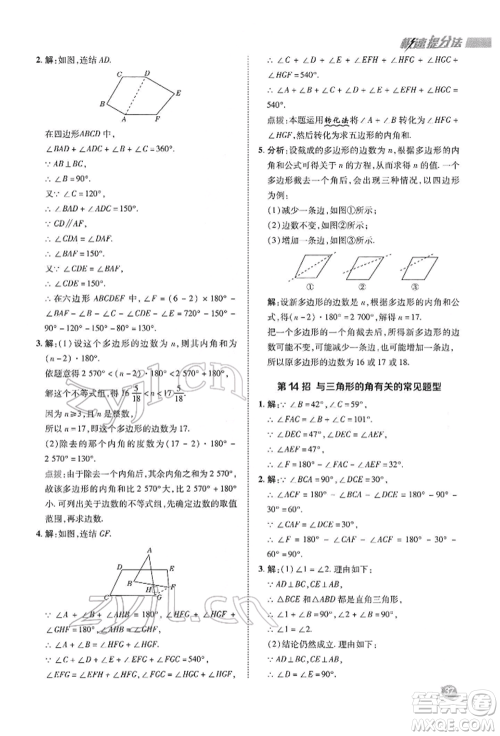 极速提分法
2. 解：如图，连结 AD.
C D
B E
A F
在四边形ABCD 中，
∠BAD + ∠ADC + ∠C = 360°.
∵ AB⊥BC,
∴ ∠B = 90°.
∴ ∠BAD + ∠ADC = 150°.
∵ CD∥AF,
∴ ∠CDA = ∠DAF.
∴ ∠BAF = 150°.
∴ 在六边形 ABCDEF 中，∠F = (6 - 2) × 180° -
90° - 120° - 150° - 80° - 150° = 130°.
3. 解：(1)设这个多边形的边数为 n，则内角和为
(n - 2)·180°.
依题意得 2 570° < (n - 2)·180° < 2 570° + 180°.
解这个不等式组，得 16 5/18 < n < 17 5/18.
因为 n≥3，且是整数，
所以 n = 17，即这个多边形的边数为 17.
(2)除去的那个内角的度数为(17 - 2) × 180° -
2 570° = 130°.
点拨：由于除去一个内角后，其余内角和为 2 570°，
故该多边形的内角和比 2 570°大，比 2 570° + 180°
小. 可列出关于边数的不等式组，先确定边数的
范围，再求边数.
4. 解：如图，连结 GF.
∵ ∠A + ∠B + ∠AHB = 180°, ∠HGF +
∠GHF = 180°, ∠AHB = ∠GHF,
∴ ∠A + ∠B = ∠HGF + ∠HFG.
∵ ∠C + ∠D + ∠E + ∠EFG + ∠CGF = 540°,
∴ ∠C + ∠D + ∠E + ∠EFH + ∠HFG + ∠CGH +
∠HGF = 540°.
∴ ∠A + ∠B + ∠C + ∠D + ∠E + ∠EFH + ∠HGC
= 540°.
点拨：本题运用转化法将∠A + ∠B 转化为∠HGF +
∠HFG，然后转化为求五边形的内角和.
5. 分析：假设截成的多边形的边数为 n，则根据多边形的内
角和公式可得关于 n 的方程，即可求出 n 的值. 一个多
边形截去一个角后，它的边数有三种可能，以四边形
为例：
(1)减少一条边，如图①所示；
(2)边数不变，如图②所示；
(3)增加一条边，如图③所示.
① ② ③
解：设新多边形的边数为 n，根据多边形的内角和公
式，得(n - 2)·180° = 2 700°. 解得 n = 17.
把一个多边形的一个角截去后，所得新多边形边数
可能不变，可能减少 1，也可能增加 1.
所以原多边形的边数为 16 或 17 或 18.
第 14 招 与三角形的角有关的常见题型
1. 解：∵ ∠B = 42°, ∠C = 59°,
∴ ∠FAC = ∠B + ∠C = 101°.
∵ ∠DEC = 47°, ∠DEC = ∠AEF,
∴ ∠AEF = 47°.
∴ ∠F = 180° - ∠FAC - ∠AEF = 32°.
2. 解：∵ ∠B = 45°, ∠DCE = 30°,
∴ ∠CAF = 90° - ∠B = 45°, ∠ACF = 90° -
∠DCE = 60°.
∵ ∠CAF + ∠ACF + ∠AFC = 180°,
∴ ∠AFC = 180° - ∠CAF - ∠ACF = 75°.
3. 解：(1)∠1 = ∠2. 理由如下：
∵ AD⊥BC, BE⊥AC,
∴ △BCE 和△ACD 均是直角三角形.
∴ ∠1 + ∠C = 90°, ∠2 + ∠C = 90°.
∴ ∠1 = ∠2.
(2)结论仍然成立. 理由如下：
∵ AD⊥BC, BE⊥AC,
∴ ∠D = ∠E = 90°.